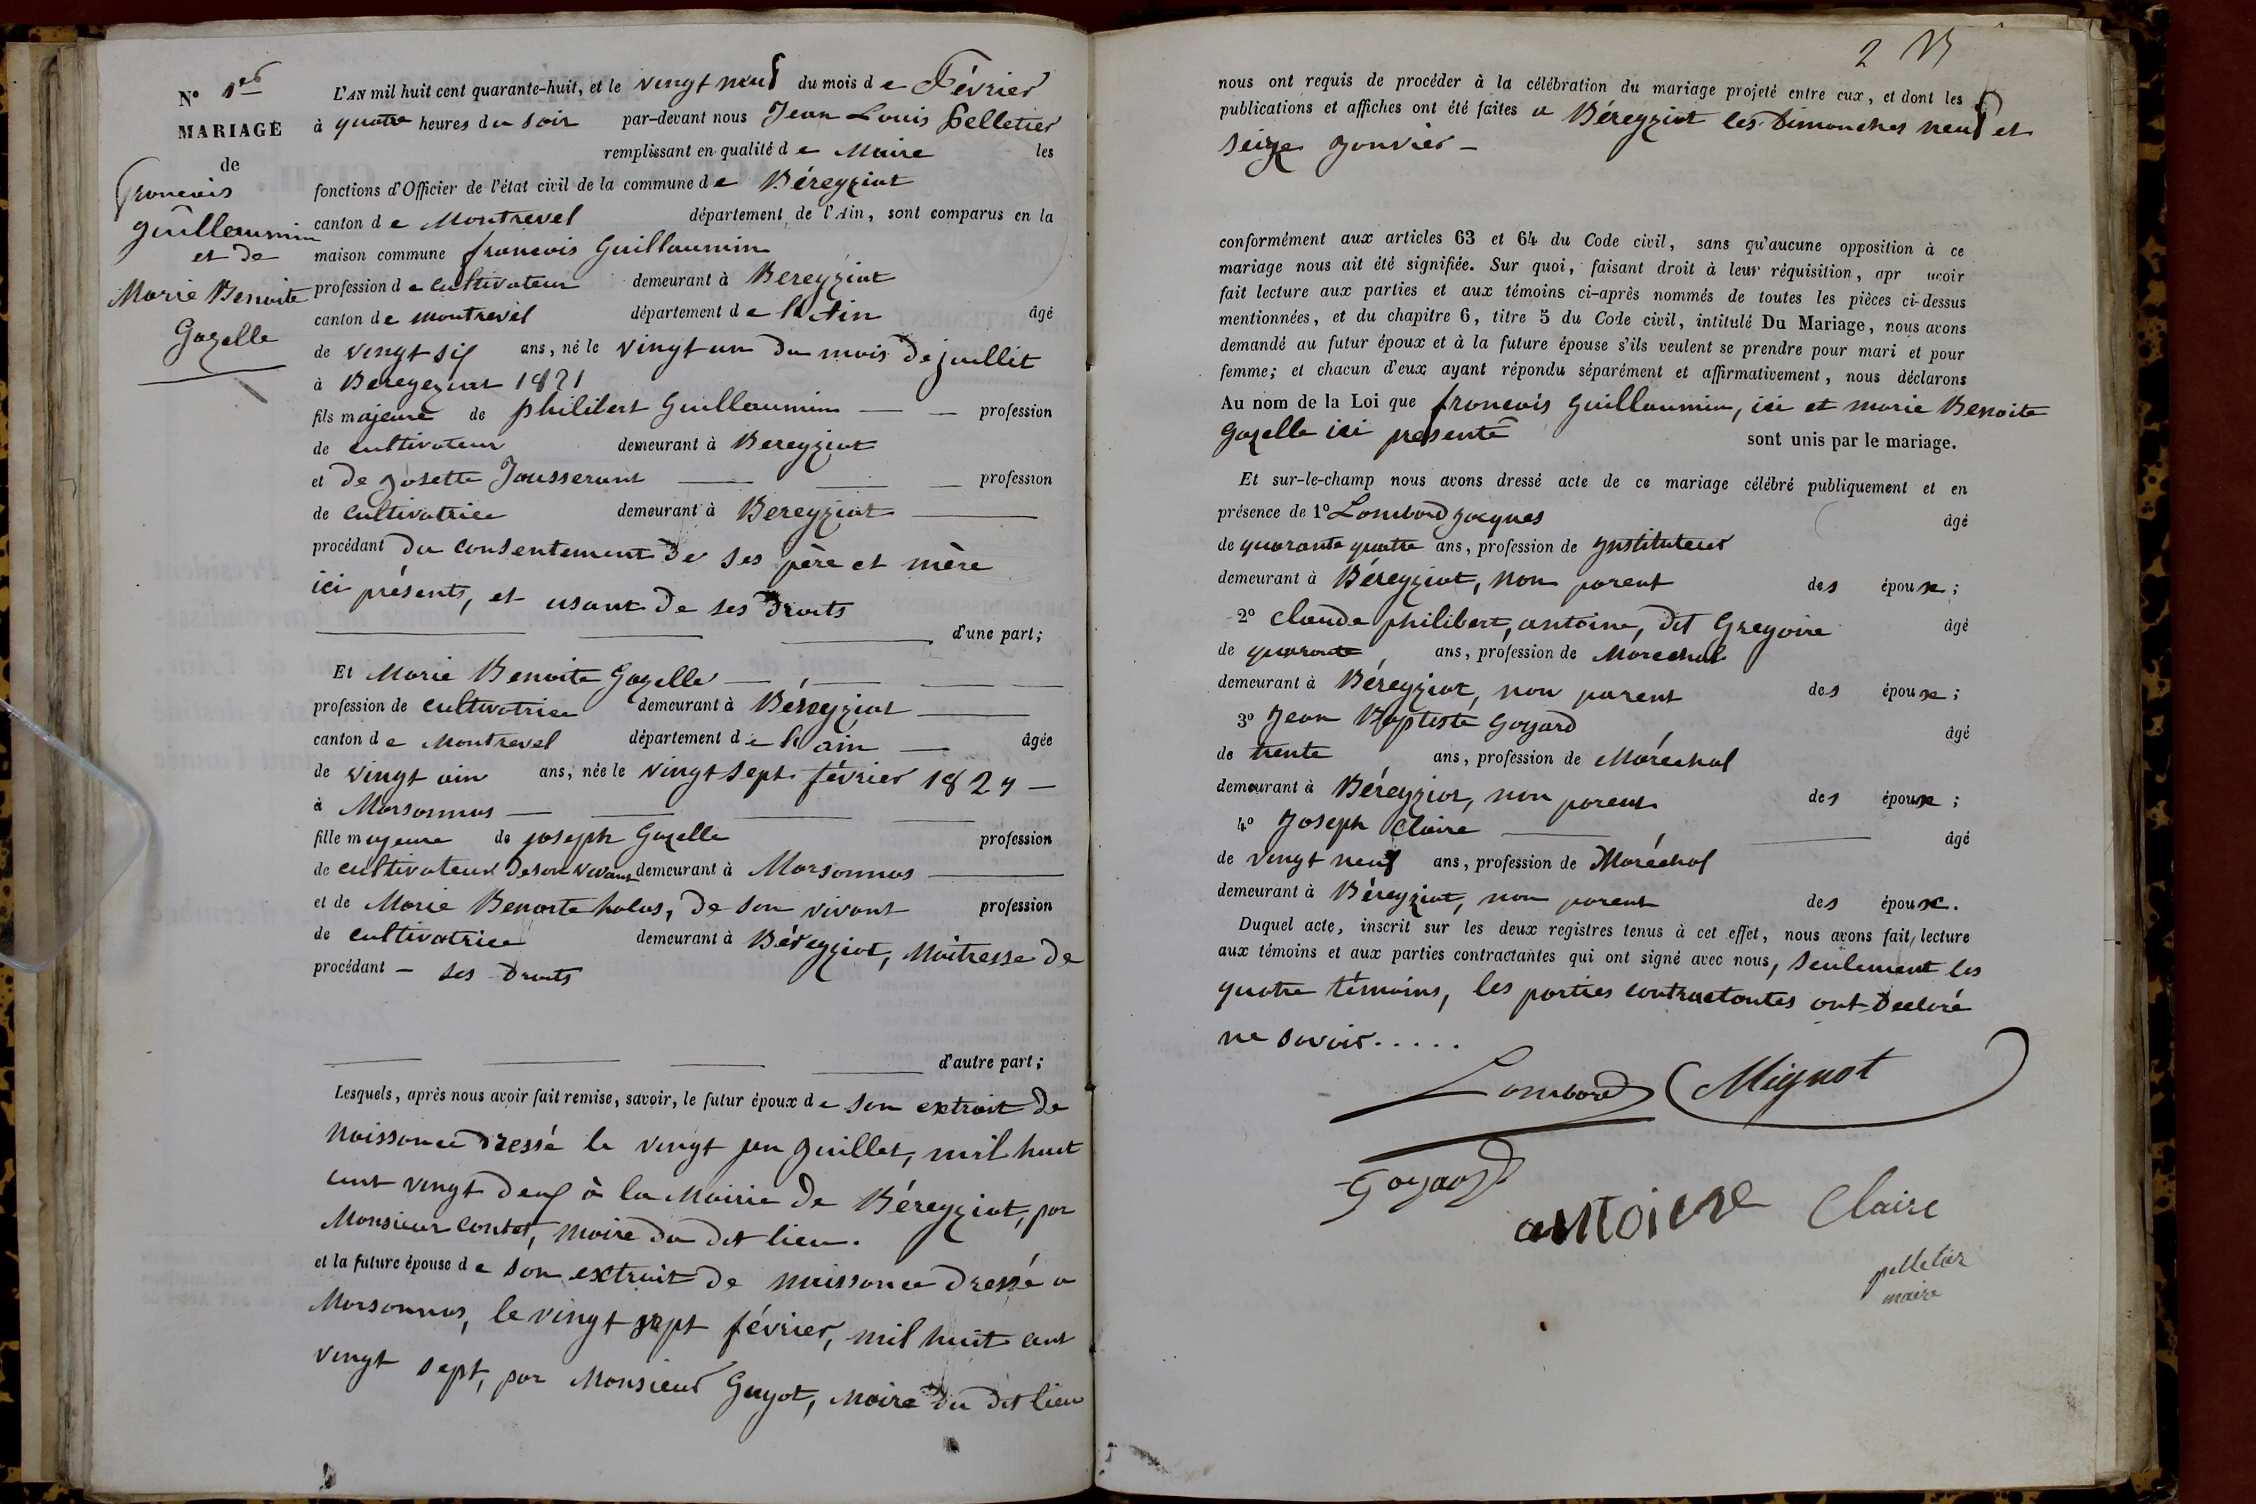 N° 1er
MARIAGE
de
François
guillaumin
et de
Marie Benoite
Gazelle
L'AN mil huit cent quarante-huit, et le vingt neuf du mois de Février
à quatre heures du soir par-devant nous Jean Louis Pelletier
remplissant en qualité de Maire les
fonctions d'Officier de l'état civil de la commune de Béreyziat
canton de Montrevel département de l'Ain, sont comparus en la
maison commune françois Guillaumin
profession de cultivateur demeurant à Bereyziat
canton de montrevel département de l'Ain âgé
de vingt six ans, né le vingt un du mois de juillet
à Bereyeziat 1821
fils majeure de philibert Guillaumin profession
de cultivateur demeurant à Bereyziat
et de Josette Jousserant profession
de cultivatrice demeurant à Bereyziat
procédant du consentement de ses père et mère
ici présents, et usant de ses droits
d'une part;
Et Marie Benoite Gazelle
profession de cultivatrice demeurant à Béreyziat
canton de Montrevel département de l'ain âgée
de vingt ain ans, née le vingt sept février 1827
à Marsonnas
fille majeure de joseph Gazelle profession
de cultivateur de son vivant demeurant à Marsonnas
et de Marie Benoite halas, de son vivant profession
de cultivatrice demeurant à Béreyziat, Maitresse de
procédant – ses droits
d'autre part;
Lesquels, après nous avoir fait remise, savoir, le futur époux de son extrait de
naissance dressé le vingt un juillet, mil huit
cent vingt deux à la Mairie de Béreyziat, par
Monsieur contet, maire du dit lieu.
et la future épouse de son extrait de naissance dressé a
Marsonnas, le vingt sept février, mil huit cent
vingt sept, par Monsieur Guyot, Maire du dit lieu
2
nous ont requis de procéder à la célébration du mariage projeté entre eux, et dont les
publications et affiches ont été faites a Béreyziat les Dimanches neuf et
seize janvier –
conformément aux articles 63 et 64 du Code civil, sans qu'aucune opposition à ce
mariage nous ait été signifiée. Sur quoi, faisant droit à leur réquisition, apr avoir
fait lecture aux parties et aux témoins ci-après nommés de toutes les pièces ci-dessus
mentionnées, et du chapitre 6, titre 5 du Code civil, intitulé Du Mariage, nous avons
demandé au futur époux et à la future épouse s'ils veulent se prendre pour mari et pour
femme; et chacun d'eux ayant répondu séparément et affirmativement, nous déclarons
Au nom de la Loi que françois guillaumin, ici et marie Benoite
gazelle ici présente sont unis par le mariage.
Et sur-le-champ nous avons dressé acte de ce mariage célébré publiquement et en
présence de 1° Lombard jacques âgé
de quarante quatre ans, profession de instituteur
demeurant à Béreyziat, non parent des époux;
2° Claude philibert, antoine, dit Gregoire âgé
de quarante ans, profession de Maréchal
demeurant à Béreyziat, non parent des époux;
3° Jean Baptiste Goyard âgé
de trente ans, profession de Maréchal
demeurant à Béreyziat, non parent des époux;
4° Joseph Claire âgé
de vingt neuf ans, profession de Maréchal
demeurant à Béreyziat, non parent des époux.
Duquel acte, inscrit sur les deux registres tenus à cet effet, nous avons fait lecture
aux témoins et aux parties contractantes qui ont signé avec nous, seulement les
quatre témoins, les parties contractantes ont declaré
ne savoir.....
Lombard Mignot
Goyard
antoine Claire
pelletier
maire